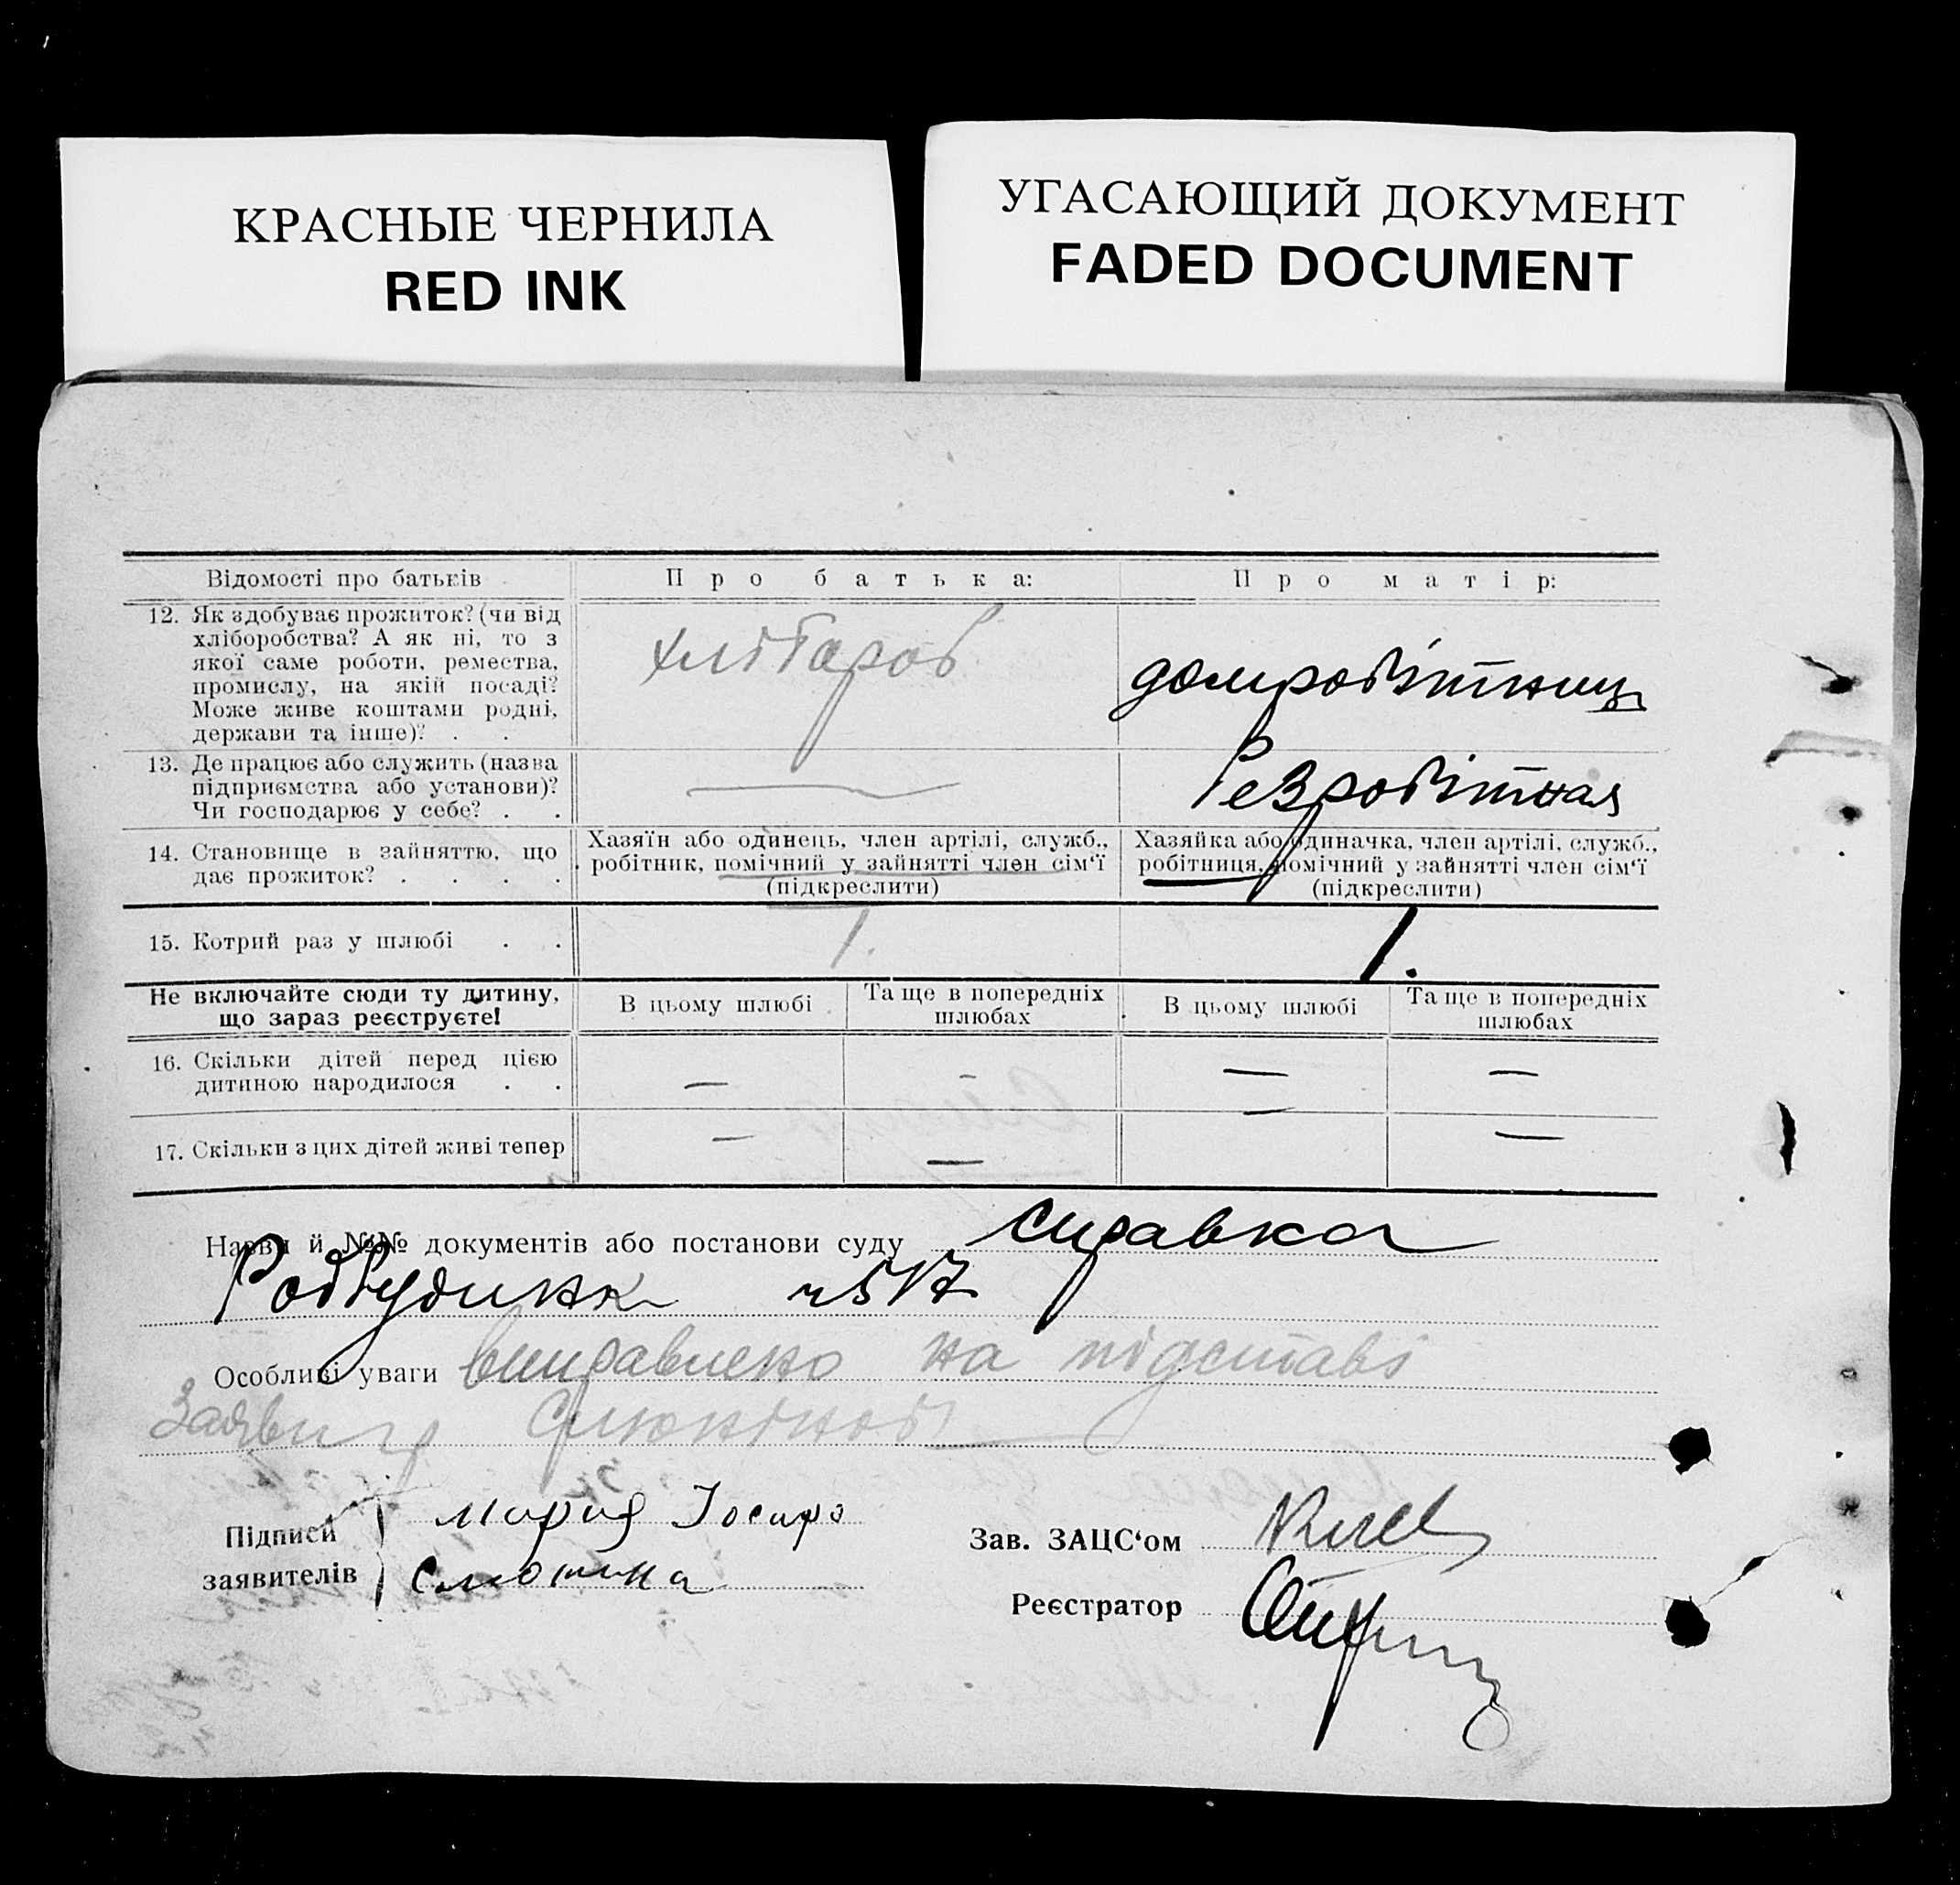 КРАСНЫЕ ЧЕРНИЛА
RED INK
УГАСАЮЩИЙ ДОКУМЕНТ
FADED DOCUMENT
Відомості про батьків
Про батька:
Про матір:
12. Як здобуває прожиток? (чи від
хліборобства? А як ні, то з
якої саме роботи, ремества,
промислу, на якій посаді?
Може живе коштами родні,
держави та інше)? . .
домробітниця
13. Де працює або служить (назва
підприємства або установи)?
Чи господарює у себе? . .
—
безробітная
14. Становище в зайняттю, що
дає прожиток? . . . .
Хазяїн або одинець, член артілі, служб.,
робітник, помічний у зайнятті член сім'ї
(підкреслити)
Хазяйка або одиначка, член артілі, служб.,
робітниця, помічний у зайнятті член сім'ї
(підкреслити)
15. Котрий раз у шлюбі . .
1.
1.
Не включайте сюди ту дитину,
що зараз реєструєте!
В цьому шлюбі
Та ще в попередніх
шлюбах
В цьому шлюбі
Та ще в попередніх
шлюбах
16. Скільки дітей перед цією
дитиною народилося . .
— — — —
17. Скільки з цих дітей живі тепер
— — — —
Назви й №№ документів або постанови суду справка
Роббудинк 517
Особливі уваги виправлено на підставі
Заяви
Підписи
заявителів
Мария
Смокина
Зав. ЗАЦС'ом
Реєстратор